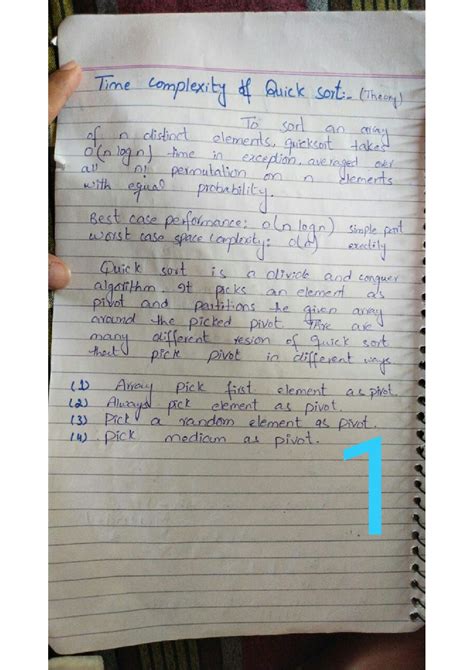 Time Complexity of Quick sort:- (Theory)
To sort an array
of n distinct elements, quicksort takes
O(n log n) time in exception, averaged over
all n! permutation on n elements
with equal probability.
Best case performance: O(n log n) simple part
worst case space complexity: O(n)
Quick sort is a divide and conquer
algorithm. It picks an element as
pivot and partitions he given array
around the picked pivot. There are
many different vesion of quick sort
that pick pivot in different ways
(1) Array pick first element as pivot.
(2) Always pick element as pivot.
(3) Pick a random element as pivot.
(4) Pick medium as pivot.
1